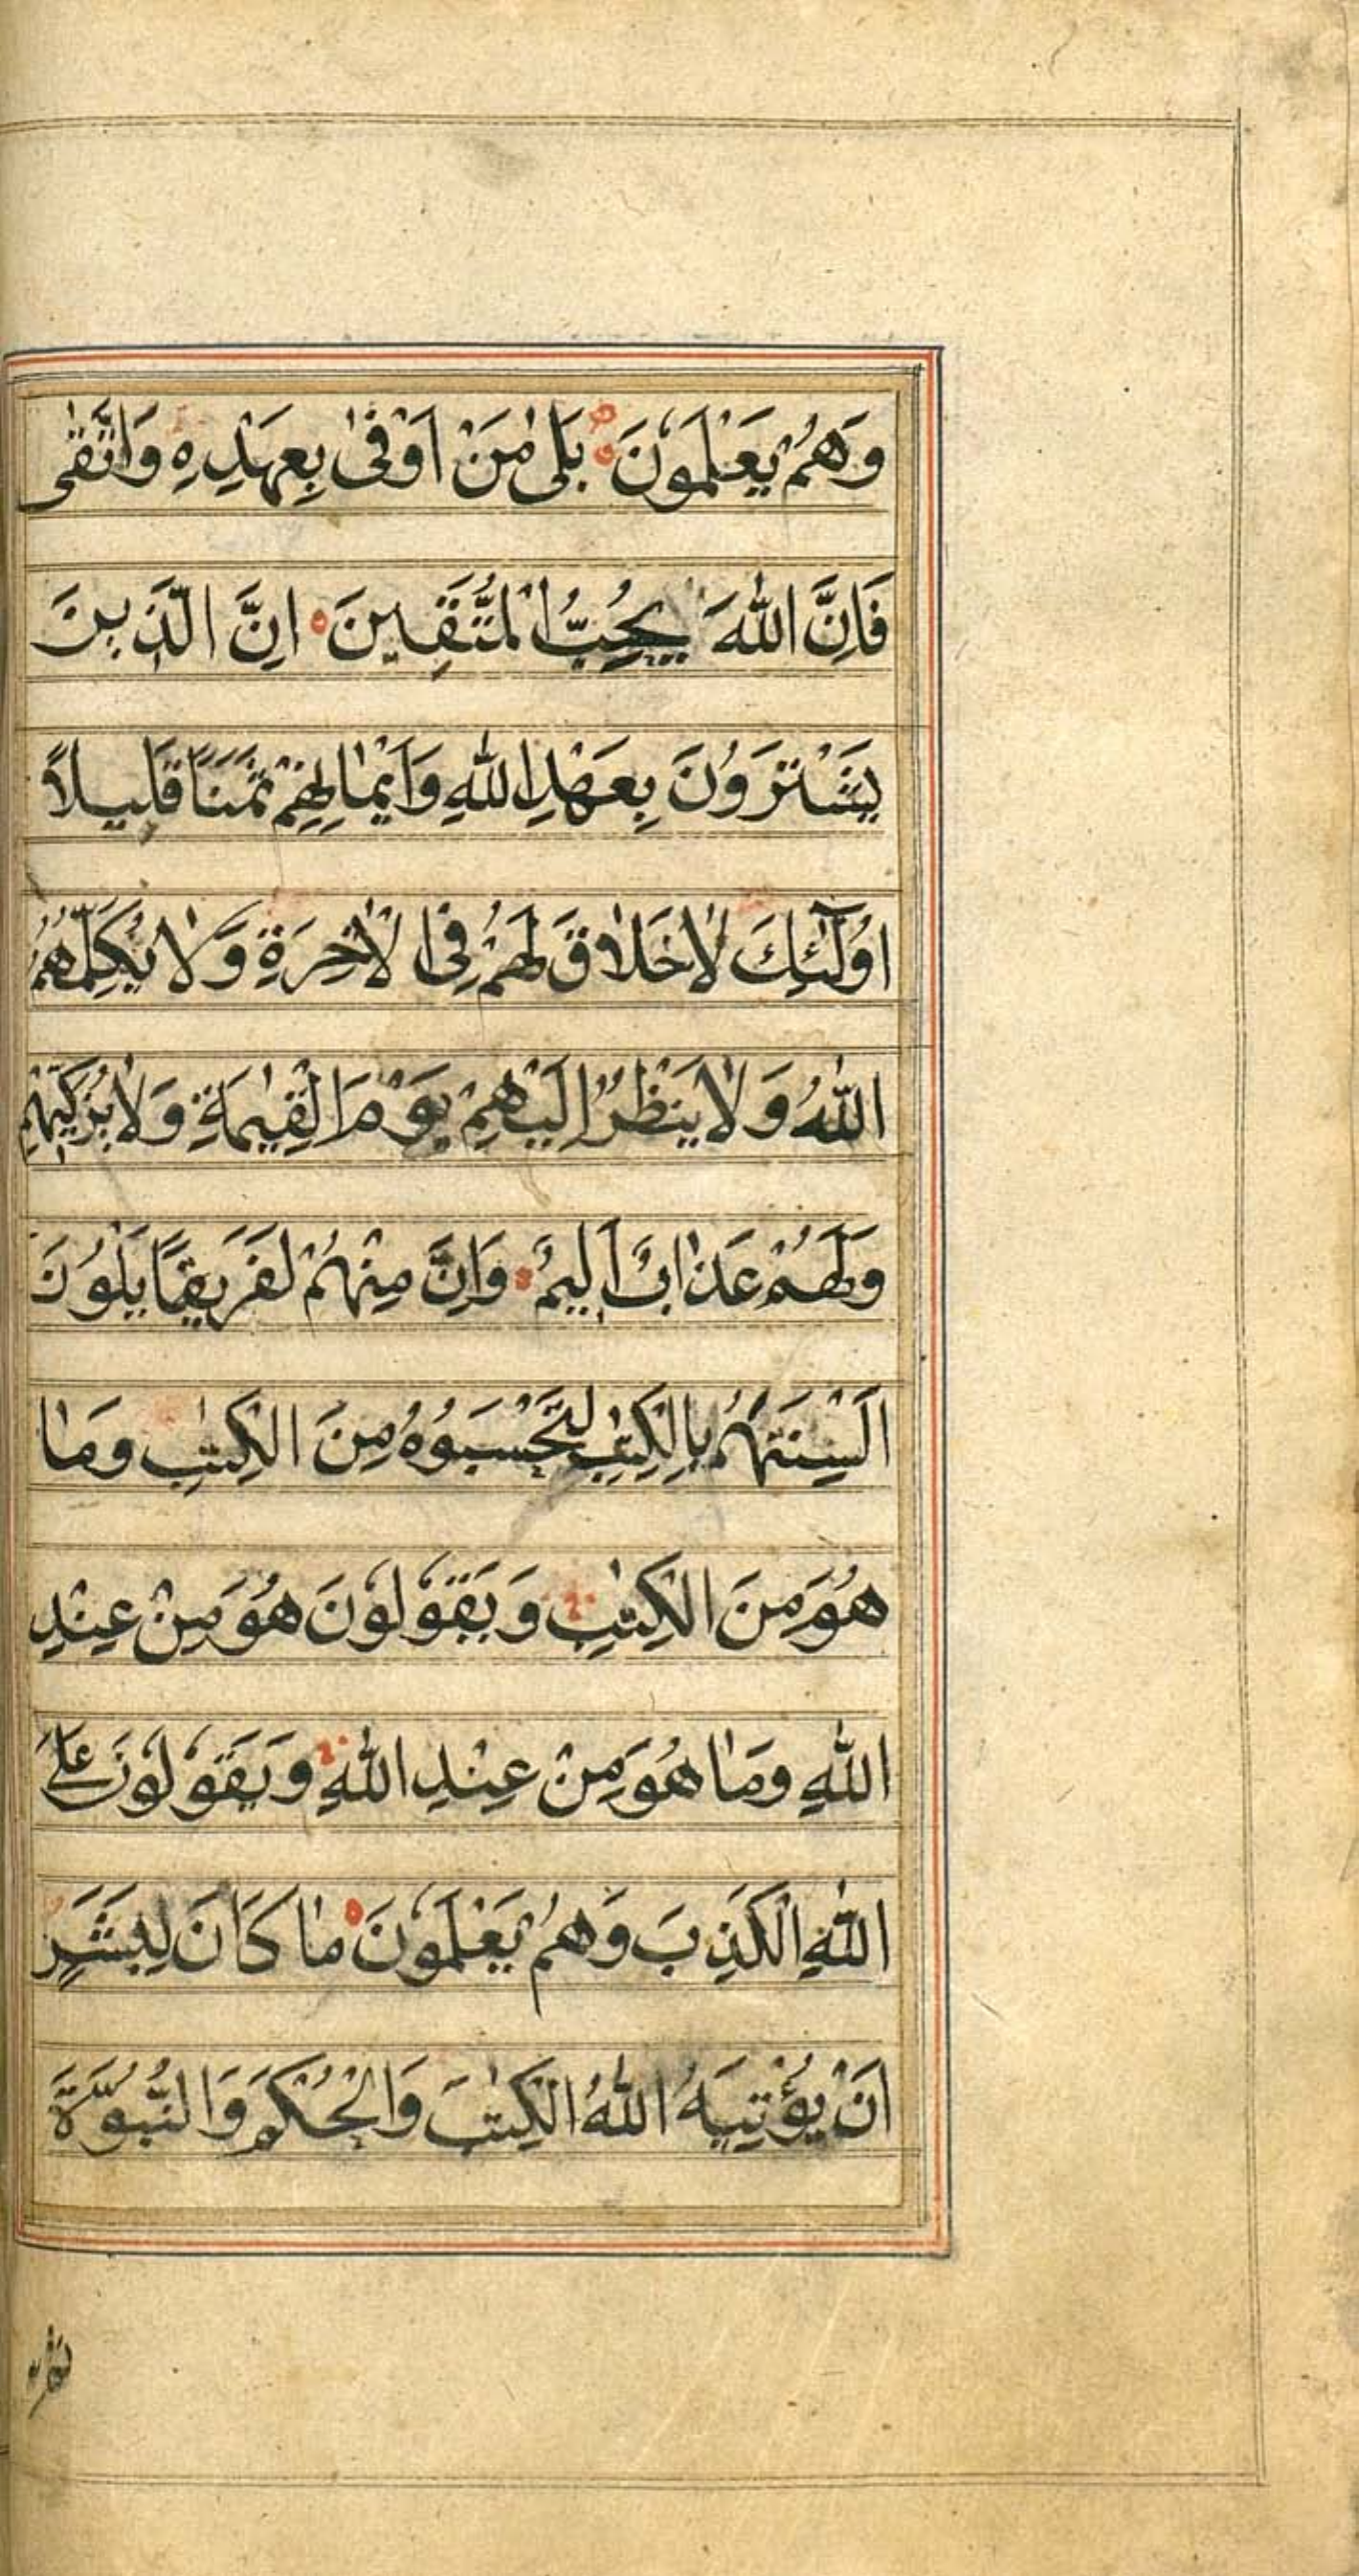 وَهُمْ يَعْلَمُونَ بَلٰى مَنْ اَوْفٰى بِعَهْدِهٖ وَاتَّقٰى
فَاِنَّ اللّٰهَ يُحِبُّ الْمُتَّقِينَ اِنَّ الَّذِينَ
يَشْتَرُونَ بِعَهْدِ اللّٰهِ وَاَيْمَانِهِمْ ثَمَنًا قَلِيلًا
اُولٰٓئِكَ لَا خَلَاقَ لَهُمْ فِى الْاٰخِرَةِ وَلَا يُكَلِّمُهُمُ
اللّٰهُ وَلَا يَنْظُرُ اِلَيْهِمْ يَوْمَ الْقِيٰمَةِ وَلَا يُزَكِّيهِمْ
وَلَهُمْ عَذَابٌ اَلِيمٌ وَاِنَّ مِنْهُمْ لَفَرِيقًا يَلْوُنَ
اَلْسِنَتَهُمْ بِالْكِتٰبِ لِتَحْسَبُوهُ مِنَ الْكِتٰبِ وَمَا
هُوَ مِنَ الْكِتٰبِ وَيَقُولُونَ هُوَ مِنْ عِنْدِ
اللّٰهِ وَمَا هُوَ مِنْ عِنْدِ اللّٰهِ وَيَقُولُونَ عَلَى
اللّٰهِ الْكَذِبَ وَهُمْ يَعْلَمُونَ مَا كَانَ لِبَشَرٍ
اَنْ يُؤْتِيَهُ اللّٰهُ الْكِتٰبَ وَالْحُكْمَ وَالنُّبُوَّةَ